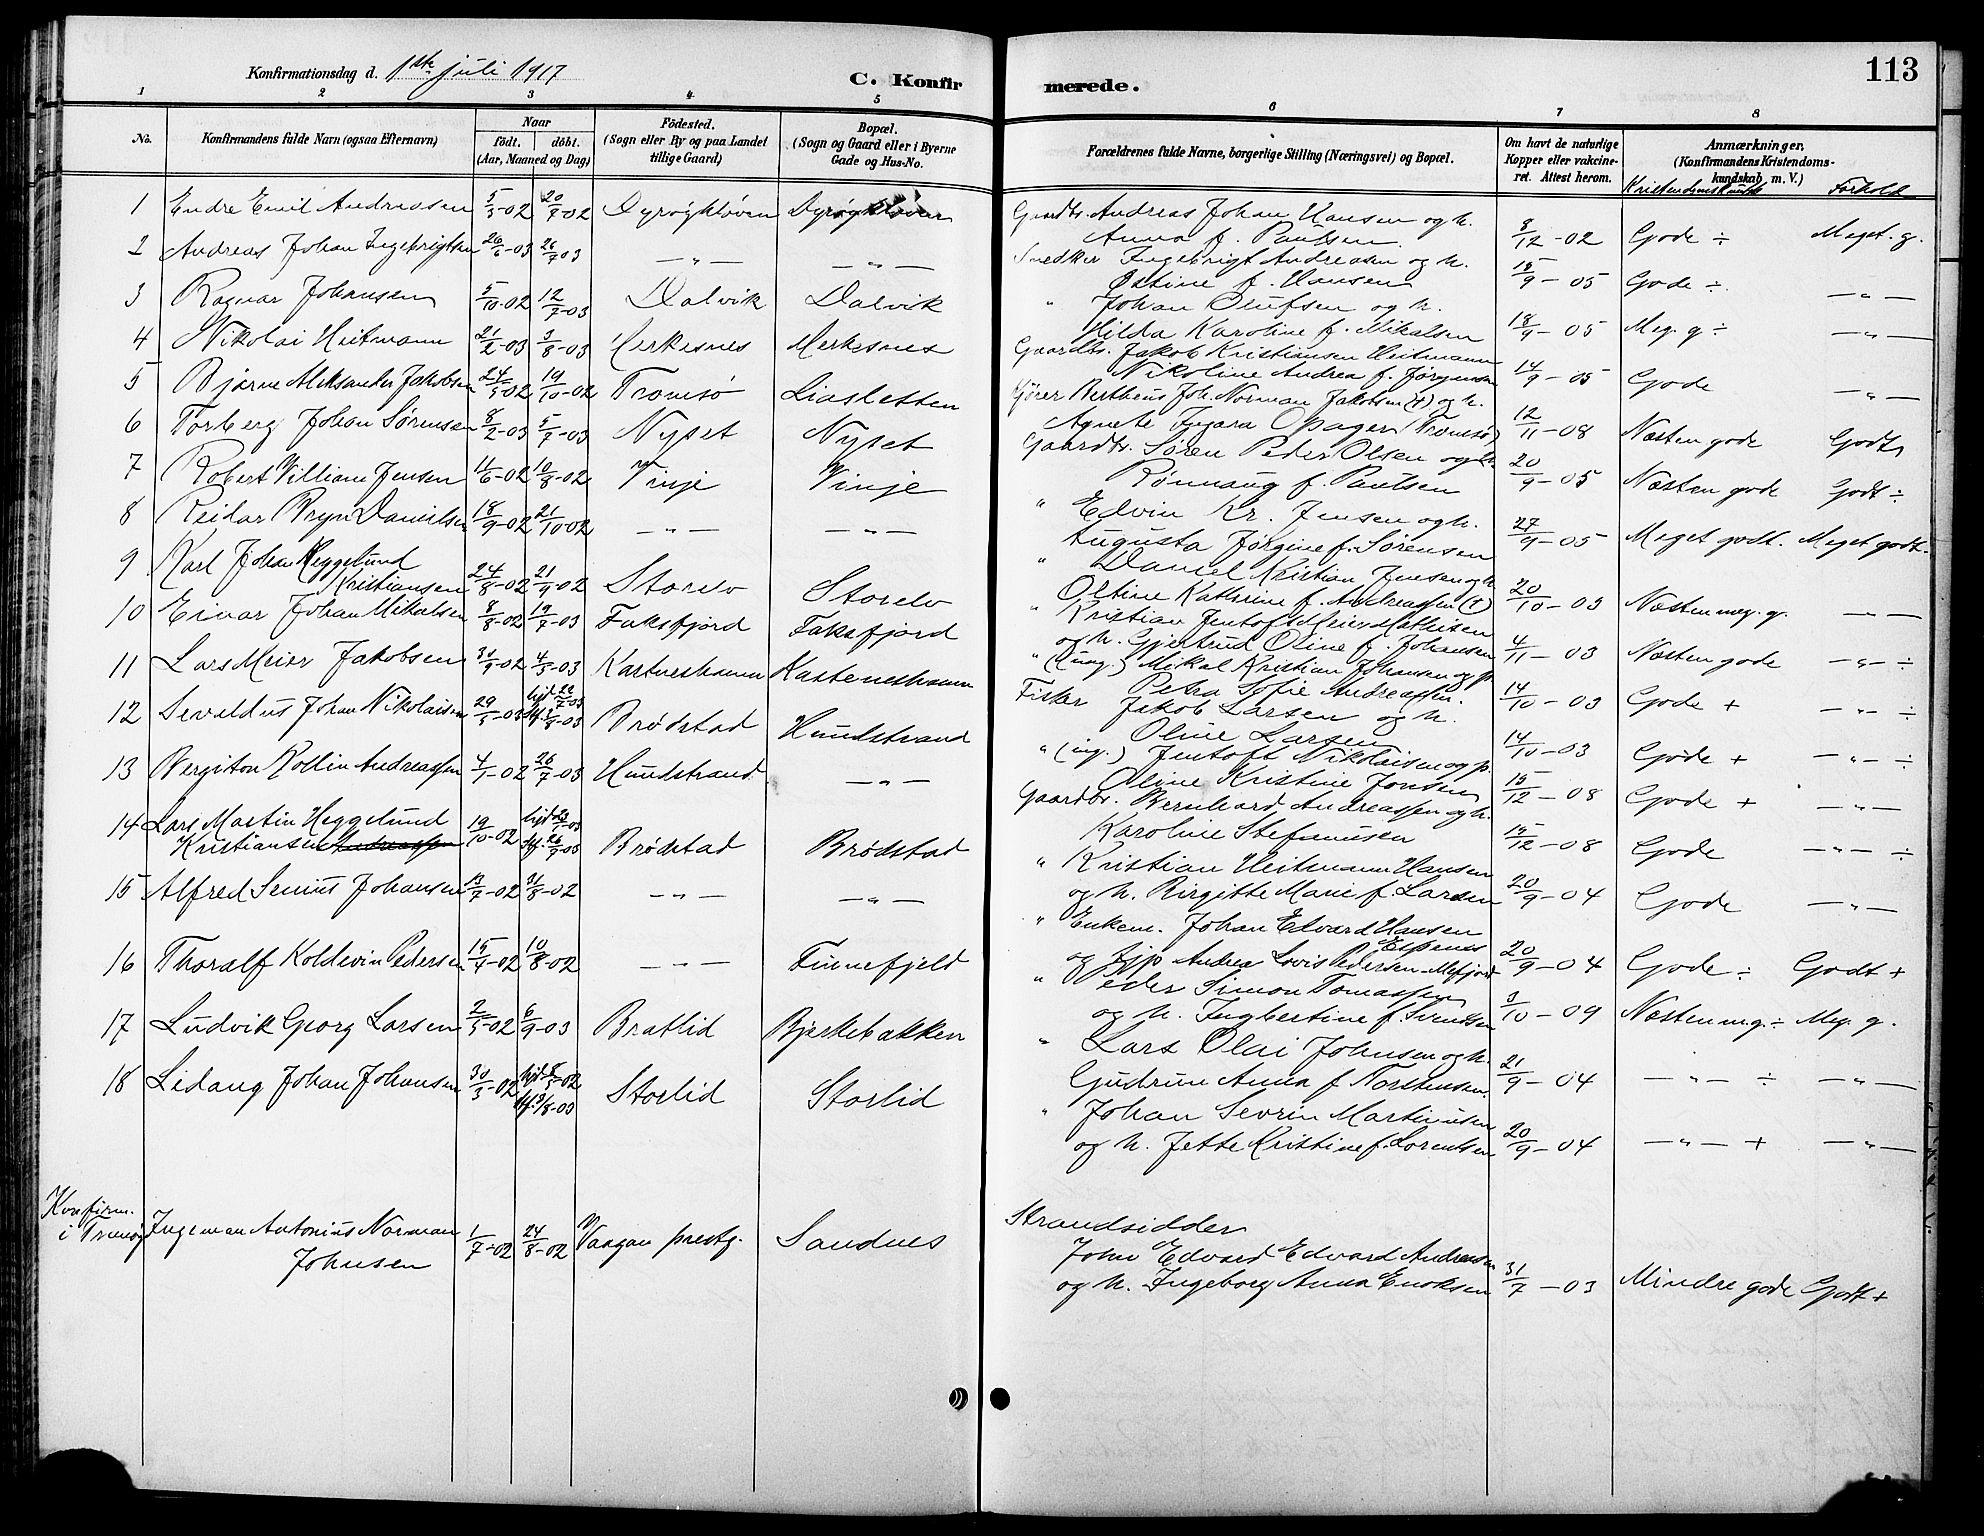 Konfirmationsdag d. 1ste juli 1917
C. Konfirmerede.
113
1 2 3 4 5 6 7 8
No.
Konfirmandens fulde Navn (ogsaa Efternavn)
Naar
födt. döbt.
(Aar, Maaned og Dag)
Födested.
(Sogn eller By og paa Landet
tillige Gaard)
Bopæl.
(Sogn og Gaard eller i Byerne
Gade og Hus-No.
Forældrenes fulde Navne, borgerlige Stilling (Næringsvei) og Bopæl.
Om havt de naturlige
Kopper eller vakcine-
ret. Attest herom.
Anmærkninger.
(Konfirmandens Kristendoms-
kundskab m. V.)
Kristendomskundsk. Forhold
1 Endre Emil Andreasen 5/3-02 20/7-02 Dyrøgkløven Dyrøgkløven
Gaardbr. Andreas Johan Hansen og h.
Anna f. Paulsen 8/12-02 Gode ÷ Meget g.
2 Andreas Johan Ingebrigtsen 26/6-03 26/7 03 —„— —„—
Snedker Ingebrigt Andreasen og h.
Østine f. Hansen 15/9-05 Gode ÷ —„—
3 Ragnar Johansen 5/10-02 12/7-03 Dalvik Dalvik
„ Johan Olufsen og h.
Hilda Karoline f. Mikalsen 18/9-05 Meg. g ÷ —„—
4 Nikolai Heitmann 21/2-03 3/8-03 Merkesnes Merkesnes
Gaardbr. Jakob Kristiansen Heitmann
Nikoline Andrea f. Jørgensen 14/9-05 Gode —„—
5 Bjarne Aleksander Jakobsen 24/5 02 19/10-02 Tromsø Liasletten
Gjører Bertheus Joh. Norman Jakobsen (†) og h.
Agnete Ingara Opager (Tromsø) 12/11-08 Næsten gode Godt
6 Torberg Johan Sørensen 8/2-03 5/7-03 Nyset Nyset
Gaardbr. Søren Peder Olsen og h.
Rønnaug f. Paulsen 20/9-05 Næsten gode Godt ÷
7 Robert William Jensen 11/6-02 10/8-02 Vinje Vinje
„ Edvin Kr. Jensen og h.
Augusta Jørgine f. Sørensen 27/9-05 Meget godt. Meget godt.
8 Reidar Bryn Danielsen 18/9-02 21/10-02 —„— —„—
„ Daniel Kristian Jensen og h
Oltine Kathrine f. Andreassen (†) 20/10-03 Næsten meg. g. —„—
9 Karl Johan Heggelund
Kristiansen 24/8-02 21/9-02 Storelv Storelv
„ Kristian Jentoft Meier Mathisen
og h. Gjertrud Oline f. Johansen 4/11-03 Næsten gode —„— ÷
10 Einar Johan Mikalsen 8/8-02 19/7-03 Faksfjord Faksfjord
„ (ung.) Mikal Kristian Johansen og p.
Petra Sofie Andreassen. 14/10-03 Gode + —„— ÷
11 Lars Meier Jakobsen 30/9-02 4/3-03 Kastneshamn Kasteneshamn
Fisker Jakob Larsen og h.
Oline Larsen 14/10-03 Gode + —„— ÷
12 Sevaldus Johan Nikolaisen 29/5-03 Brødstad Hundstrand
„ (ung.) Jentoft Nikolaisen og p.
Oline Kristine Jonsen 15/12-08 Gode + —„—
13 Bergiton Kollin Andreassen 4/1-02 26/7-03 Hundstrand —„—
Gaardbr. Bernhard Andreassen og h.
Karoline Stefanusen 15/12-08 Gode —„— ÷
14 Lars Martin Heggelund
Kristiansen 19/10-02 Brødstad Brødstad
„ Kristian Heitmann Hansen
og h. Birgitte Marie f. Larsen 20/9-04 Gode —„—
15 Alfred Senius Johansen 13/7-02 31/8-02 —„— —„—
„ Enkem. Johan Edvard Hansen
Espenes
og Andrea Lovise Pedersen Mefjord 20/9-04 Gode ÷ Godt +
16 Thoralf Koldevin Pedersen 15/4-02 10/8-02 —„— Finnefjeld
„ Peder Simon Tomassen
og h. Ingbertine f. Svendsen 3/10-09 Næsten m.g. ÷ Meg. g.
17 Ludvik Georg Larsen 2/5-02 6/9-03 Bratlid Bjerkebakken
„ Lars Olai Johnsen og h.
Gudrun Anna f Torstensen. 21/9-04 —„— ÷ —„—
18 Lidang Johan Johansen 30/3-02 Storlid Storlid
„ Johan Sevrin Martinusen
og h. Jette Kristine f. Lorentsen 20/9-04 —„— + —„—
Konfirm.
i Tranøy Ingeman Antonius Norman
Johnsen 1/7-02 24/8-02 Vaagan prestg. Sandnes
Strandsidder
John Edvard Edvard Andreasen
og h. Ingeborg Anna Enoksen 31/7-03 Mindre gode Godt +